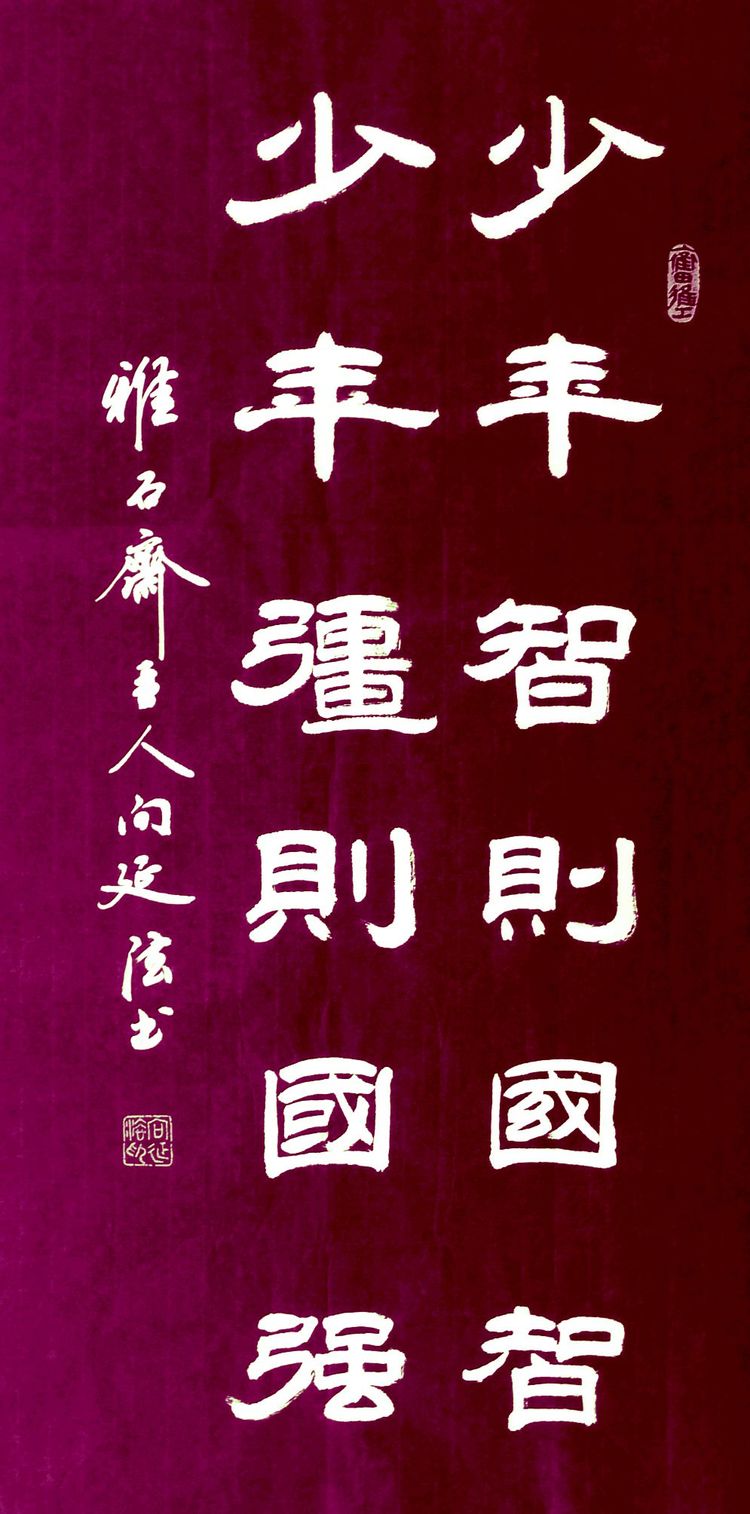 少年智則國智
少年彊則國强
雅石齋主人向延法书